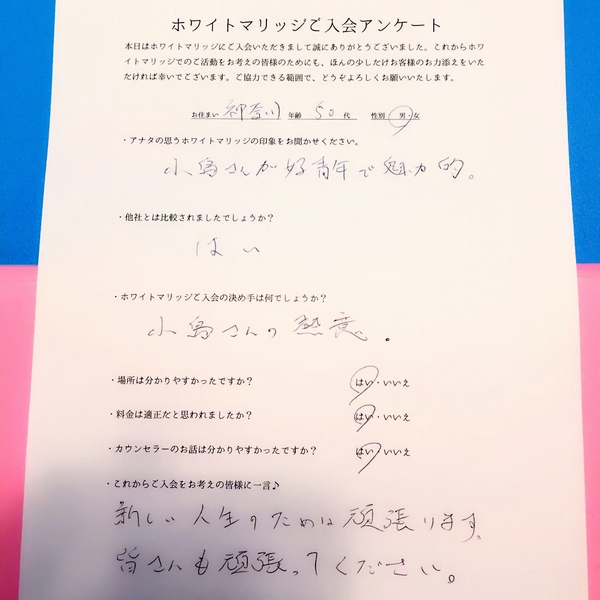 ホワイトマリッジご入会アンケート
本日はホワイトマリッジにご入会いただきまして誠にありがとうございました。これからホワ
イトマリッジでのご活動をお考えの皆様のためにも、ほんの少しだけお客様のお力添えをいた
だければ幸いでございます。ご協力できる範囲で、どうぞよろしくお願いいたします。
お住まい 神奈川 年齢 50 代 性別 男・女
・アナタの思うホワイトマリッジの印象をお聞かせください。
小島さんが好青年で魅力的。
・他社とは比較されましたでしょうか？
はい
・ホワイトマリッジご入会の決め手は何でしょうか？
小島さんの熱意。
・場所は分かりやすかったですか？ はい・いいえ
・料金は適正だと思われましたか？ はい・いいえ
・カウンセラーのお話は分かりやすかったですか？ はい・いいえ
・これからご入会をお考えの皆様に一言♪
新しい人生のために頑張ります。
皆さんも頑張ってください。